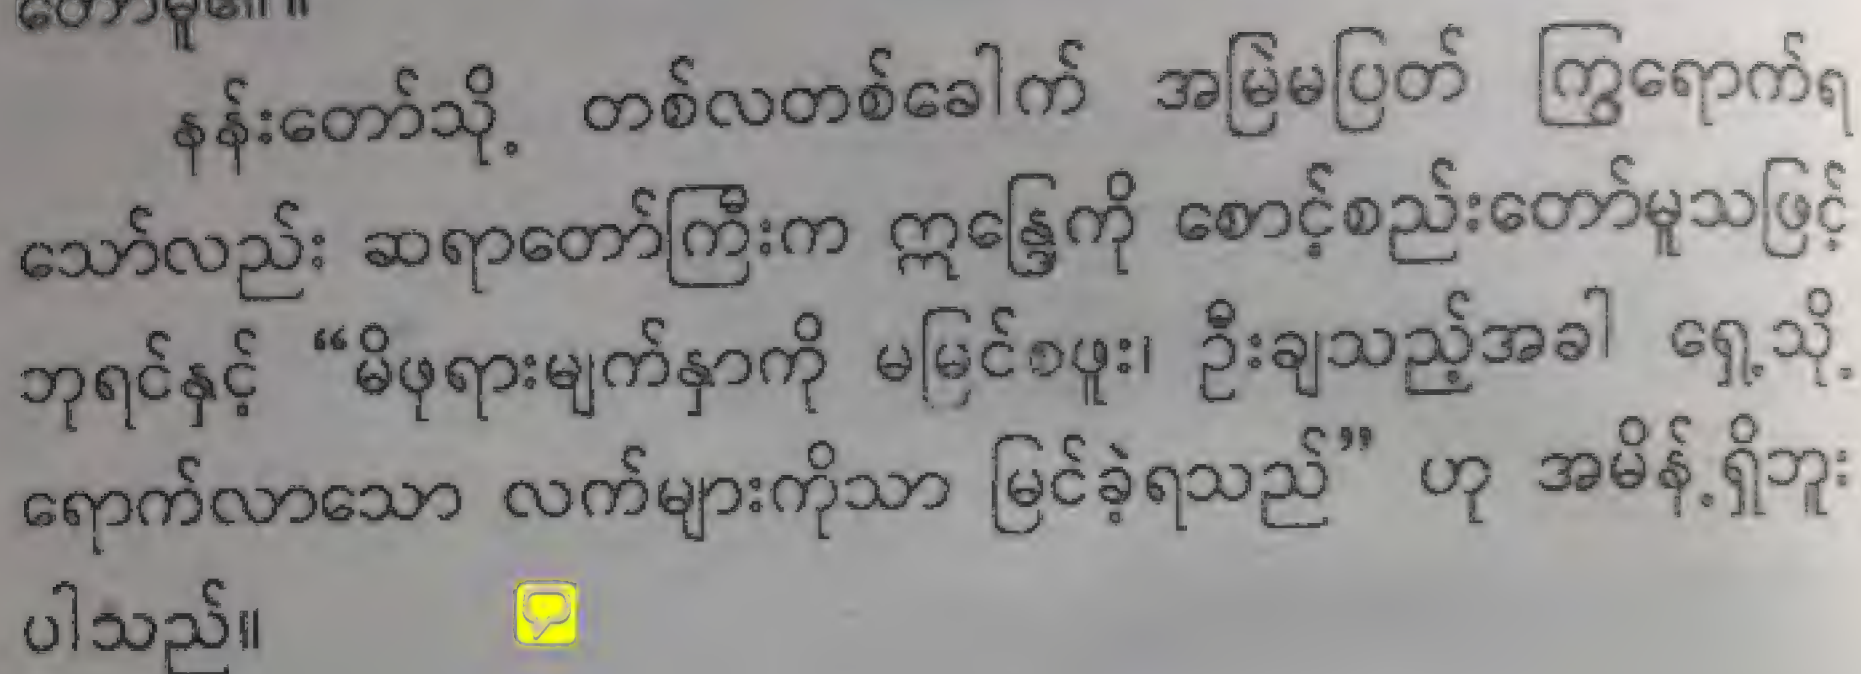 တော်မူ၏။
နန်းတော်သို့ တစ်လတစ်ခေါက် အမြဲမပြတ် ကြွရောက်ရ
သော်လည်း ဆရာတော်ကြီးက ဣန္ဒြေကို စောင့်စည်းတော်မူသဖြင့်
ဘုရင်နှင့် “မိဖုရားမျက်နှာကို မမြင်စဖူး၊ ဦးချသည့်အခါ ရှေ့သို့
ရောက်လာသော လက်များကိုသာ မြင်ခဲ့ရသည်” ဟု အမိန့်ရှိဘူး
ပါသည်။